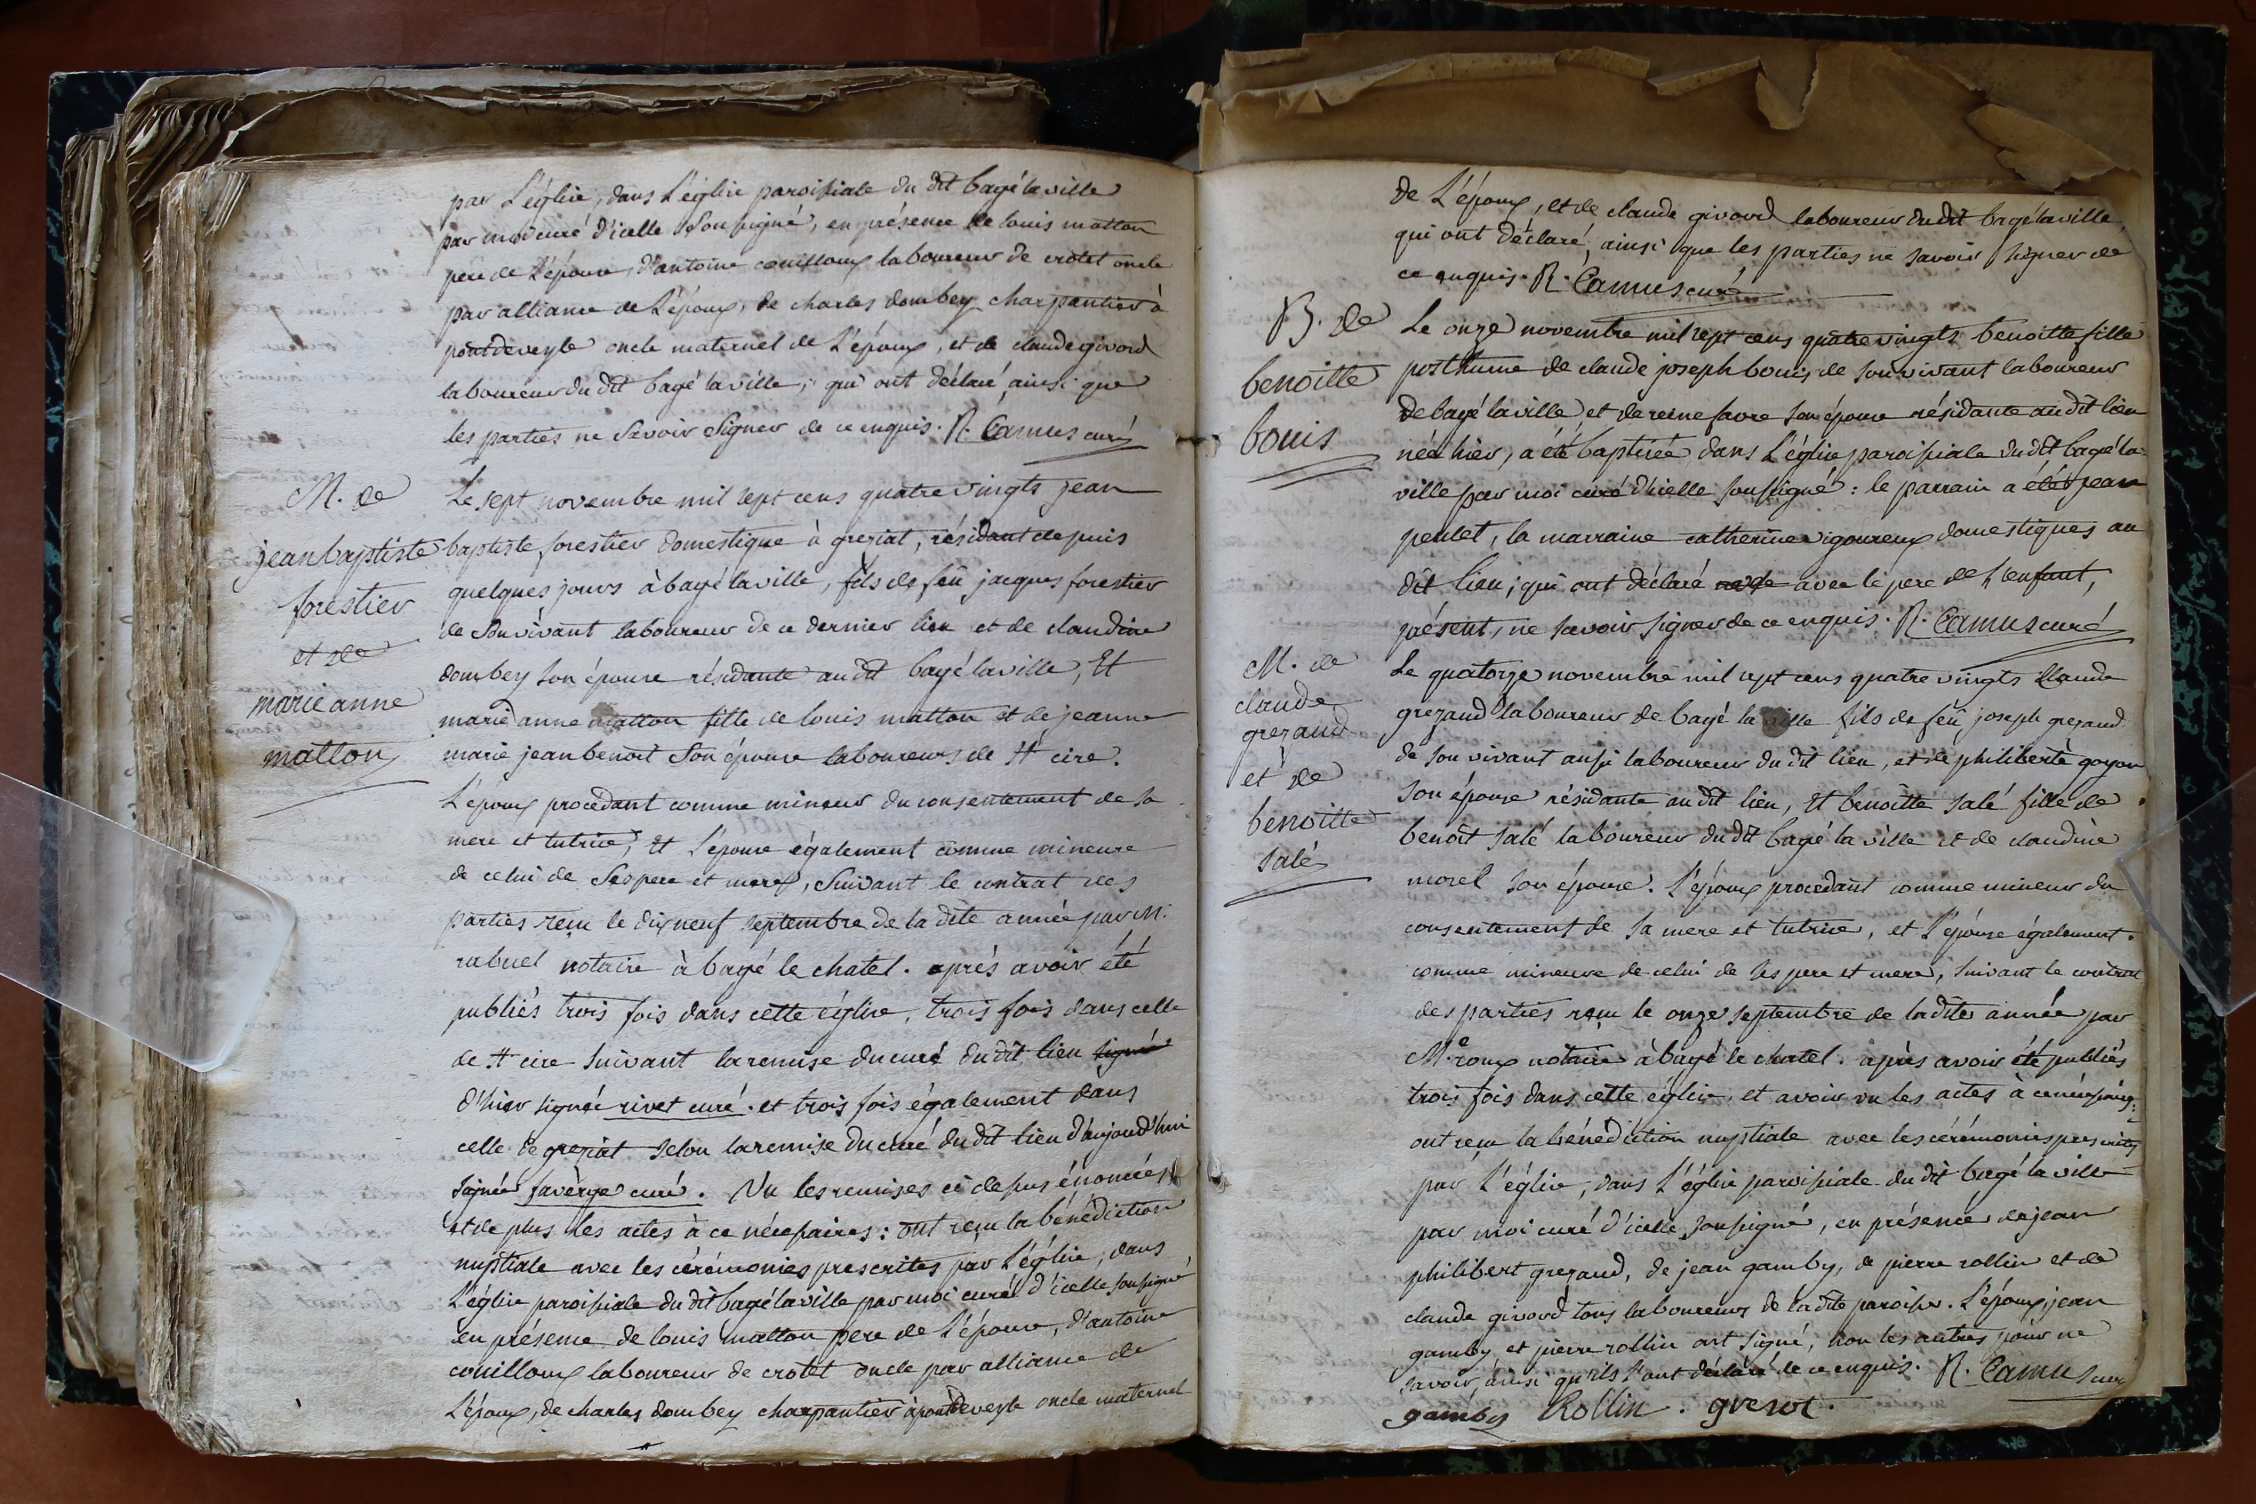 par L'église, dans L'église paroissiale du dit bagé la ville
par moi curé d'icelle soussigné, en présence de louis matton
pere de L'épouse, d'antoine couilloux laboureur de crotet oncle
par alliance de L'époux, de charles dombey charpantier à
pontdeveyle oncle maternel de L'époux, et de claude givord
laboureur du dit bagé la ville, qui ont déclaré, ainsi que
les parties ne savoir signer de ce enquis. R. Camus curé
M. de
jean baptiste
forestier
et de
marie anne
matton
Le sept novembre mil sept cens quatre vingts jean
baptiste forestier domestique à greziat, résidant depuis
quelques jours à bagé la ville, fils de feu jacques forestier
de son vivant laboureur de ce dernier lieu et de claudine
dombey son épouse résidante au dit bagé la ville, Et
marie anne matton fille de louis matton et de jeanne
marie jean benoit son épouse laboureurs de St cire.
L'époux procedant comme mineur du consentement de sa
mere et tutrice, Et L'épouse également comme mineure
de celui de ses pere et mere, suivant le contrat des
parties reçu le dix neuf septembre de la dite année par M.
rabuel notaire à bagé le chatel. après avoir été
publiés trois fois dans cette église, trois fois dans celle
de St cire suivant la remise du curé du dit lieu signé
d'hier signée rivet curé. et trois fois également dans
celle de greziat selon la remise du curé du dit lieu d'aujourd'hui
signée favérge curé. Vu les remises ci dessus énoncées
et de plus les actes à ce nécessaires: ont reçu la bénédiction
nuptiale avec les cérémonies prescrites par L'église, dans
L'église paroissiale du dit bagé la ville par moi curé d'icelle soussigné
en présence de louis matton pere de L'épouse, d'antoine
couilloux laboureur de crotet oncle par alliance de
L'époux, de charles dombey charpantier à pontdeveyle oncle maternel
de L'époux, et de claude givord laboureur du dit bagé la ville,
qui ont déclaré, ainsi que les parties ne savoir signer de
ce enquis. R. Camus curé
B. de
benoitte
bouis
Le onze novembre mil sept cens quatre vingts benoitte fille
posthume de claude joseph bouis de son vivant laboureur
de bagé la ville et de reine favre son épouse résidante au dit lieu
née hier, a été baptisée dans L'église paroissiale du dit bagé la
ville par moi curé d'icelle soussigné: le parrain a été jean
peulet, la marraine catherine vigoureux domestiques au
dit lieu; qui ont déclaré avec le pere de L'enfant,
présent, ne savoir signer de ce enquis. R. Camus curé
M. de
claude
grezaud
et de
benoitte
salé
Le quatorze novembre mil sept cens quatre vingts Claude
grezaud laboureur de bagé la ville fils de feu joseph grezaud
de son vivant aussi laboureur du dit lieu, et de philiberte goyon
son épouse résidante au dit lieu, Et benoitte salé fille de
benoit salé laboureur du dit bagé la ville et de claudine
morel son épouse. L'époux procedant comme mineur du
consentement de sa mere et tutrice, et L'épouse également
comme mineure de celui de ses pere et mere, suivant le contrat
des parties reçu le onze septembre de la dite année par
Me. roux notaire à bagé le chatel. après avoir été publiés
trois fois dans cette église et avoir vu les actes à ce nécessaires
ont reçu la bénédiction nuptiale avec les cérémonies prescrites
par L'église, dans L'église paroissiale du dit bagé la ville
par moi curé d'icelle soussigné, en présence de jean
philibert grezaud, de jean gamby, de pierre rollin et de
claude givord tous laboureurs de la dite paroisse. L'époux, jean
gamby et pierre rollin ont signé, non les autres pour ne
savoir, ainsi qu'ils l'ont déclaré de ce enquis. R. Camus curé
gamby Rollin. gresot.